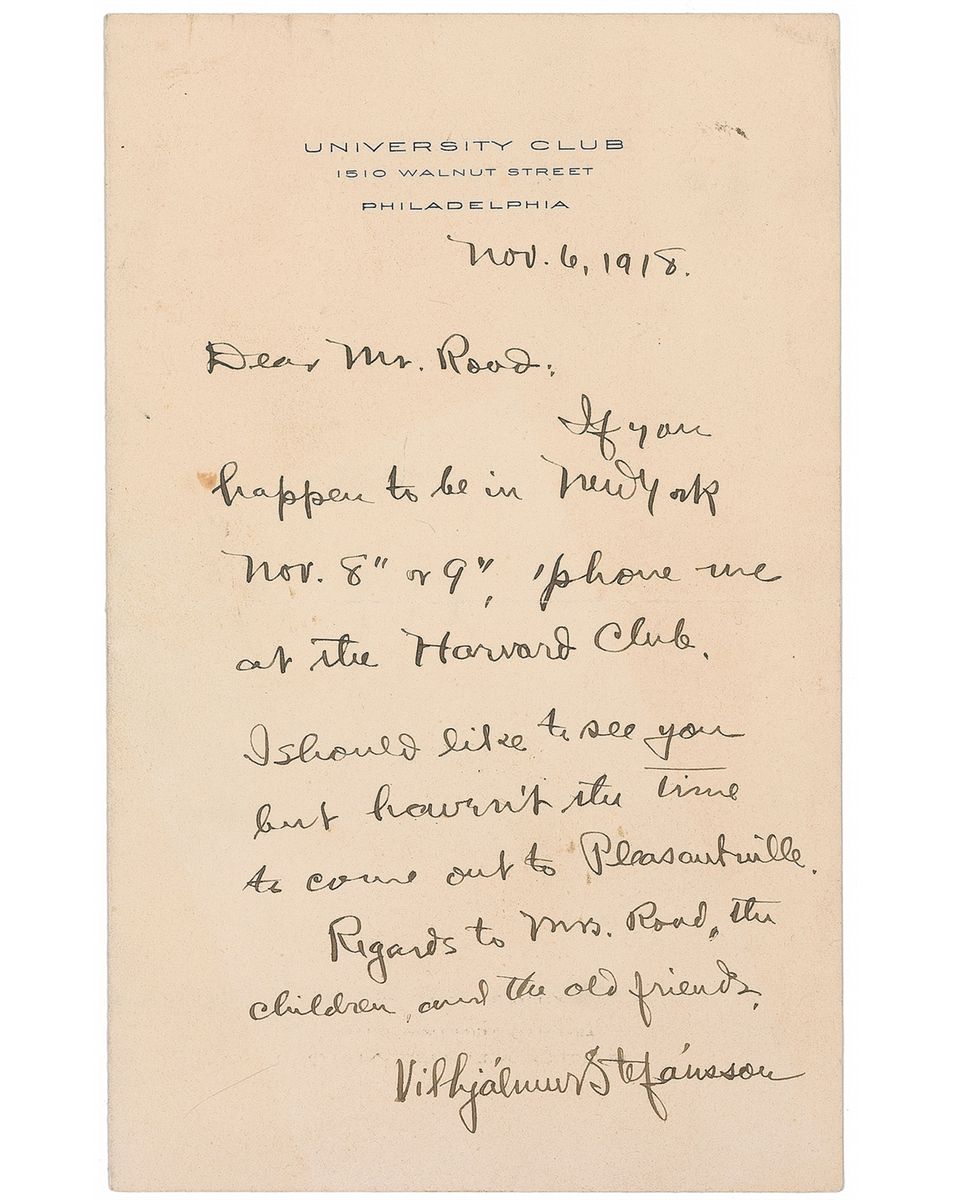 UNIVERSITY CLUB
1510 WALNUT STREET
PHILADELPHIA
Nov. 6, 1918.
Dear Mr. Rood:
If you
happen to be in New York
Nov. 8" or 9", 'phone me
at the Harvard Club.
I should like to see you
but haven't the time
to come out to Pleasantville.
Regards to Mrs. Rood, the
children, and the old friends.
Vilhjálmur Stefánsson